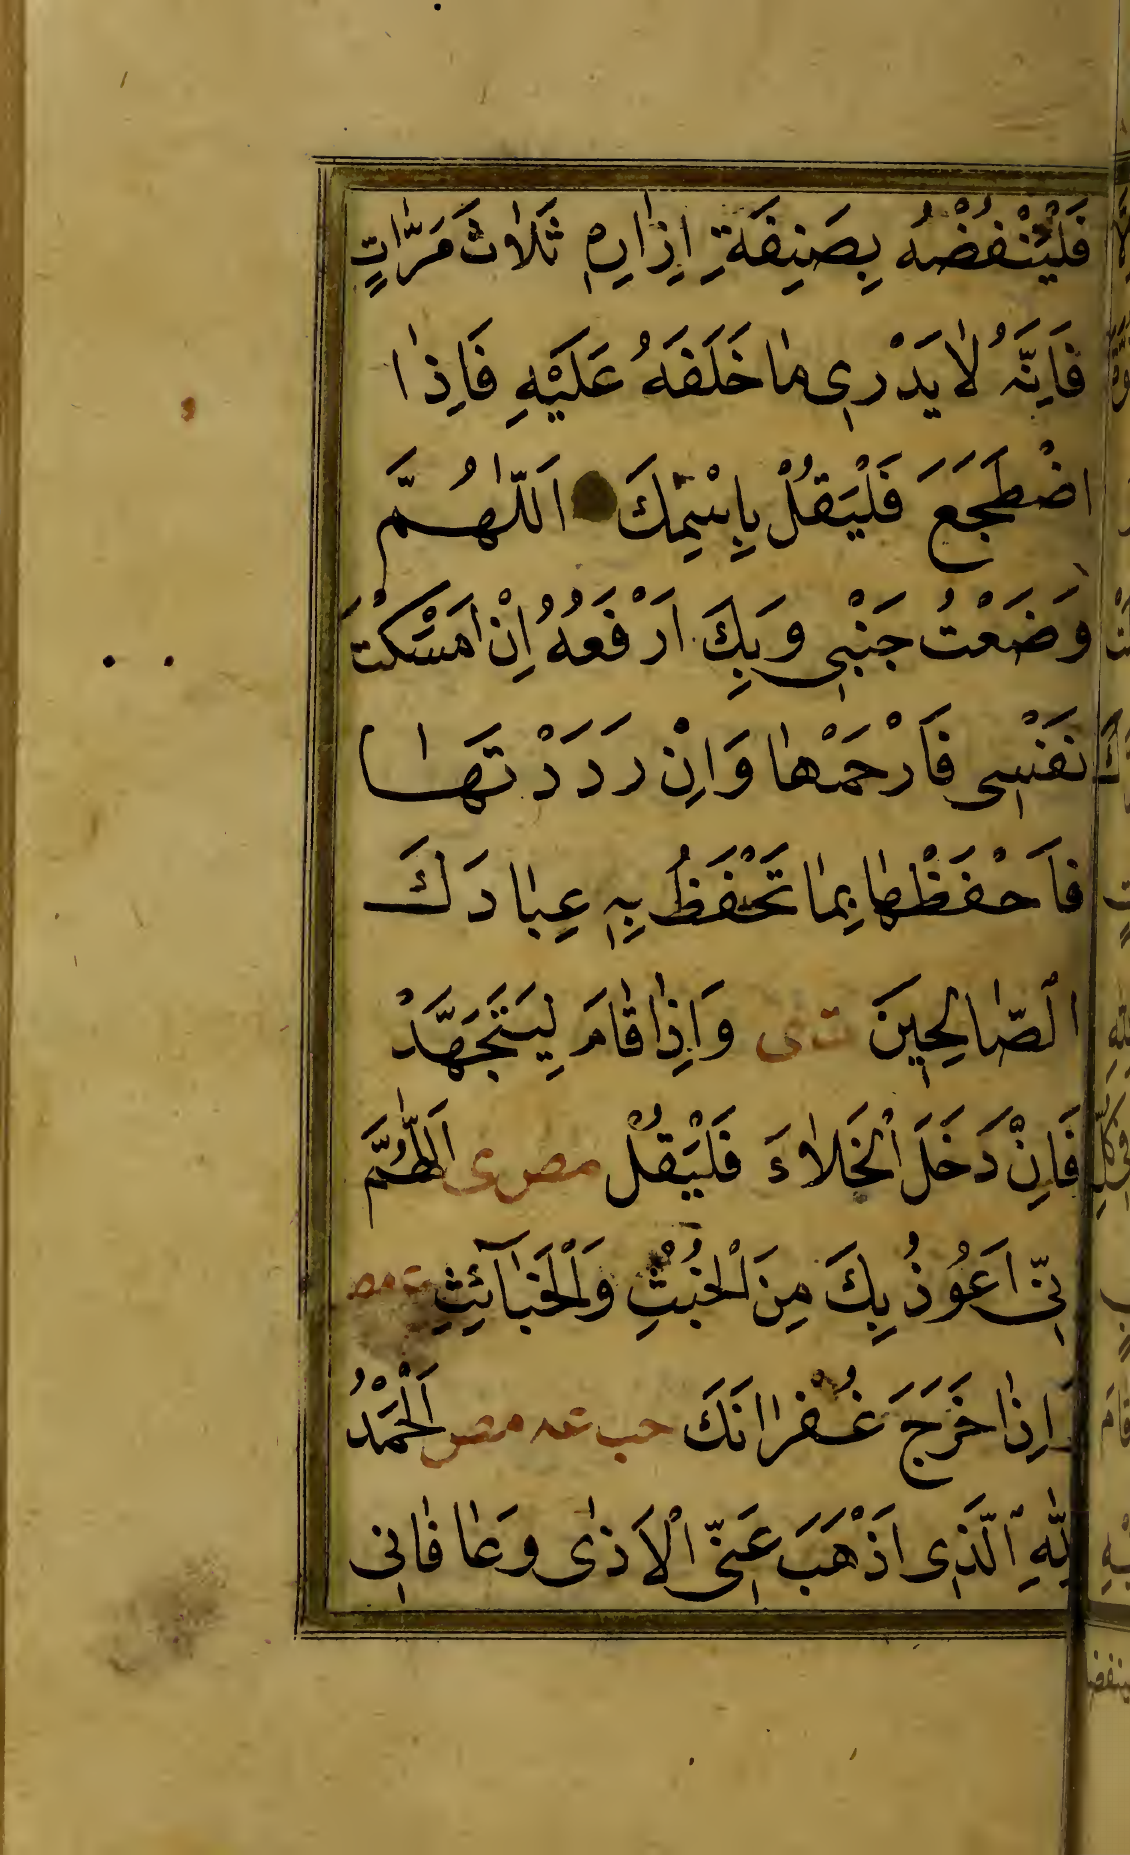 فَلْيَنْفُضْهُ بِصَنِفَةِ اِزٰارِهِ ثَلٰاثَ مَرّٰاتٍ
فَاِنَّهُ لٰا يَدْرِى مٰا خَلَفَهُ عَلَيْهِ فَاِذٰا
اضْطَجَعَ فَلْيَقُلْ بِاِسْمِكَ اَللّٰهُمَّ
وَضَعْتُ جَنْبِى وَبِكَ اَرْفَعُهُ اِنْ اَمْسَكْتَ
نَفْسِى فَارْحَمْهٰا وَاِنْ رَدَدْتَهٰا
فَاحْفَظْهٰا بِمٰا تَحْفَظُ بِهِ عِبٰادَكَ
الصّٰالِحِينَ ت ى وَاِذٰا قٰامَ لِيَتَهَجَّدْ
فَاِنْ دَخَلَ الْخَلٰاءَ فَلْيَقُلْ مص ى اَللّٰهُمَّ
نِّى اَعُوذُ بِكَ مِنَ الْخُبُثِ وَالْخَبٰآئِثِ ت مص
اِذٰا خَرَجَ غُفْرٰانَكَ حب عه مص اَلْحَمْدُ
لِلّٰهِ الَّذِى اَذْهَبَ عَنِّى الْاَذٰى وَعٰافٰانِى